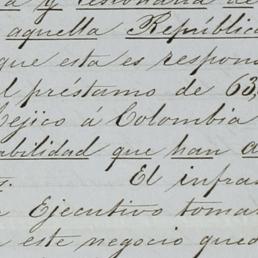 y cesionaria de
aquella República
que esta es respons
l préstamo de 63,
Méjico á Colombia
abilidad que han a
s. El infras
Ejecutivo tomar
este negocio qued